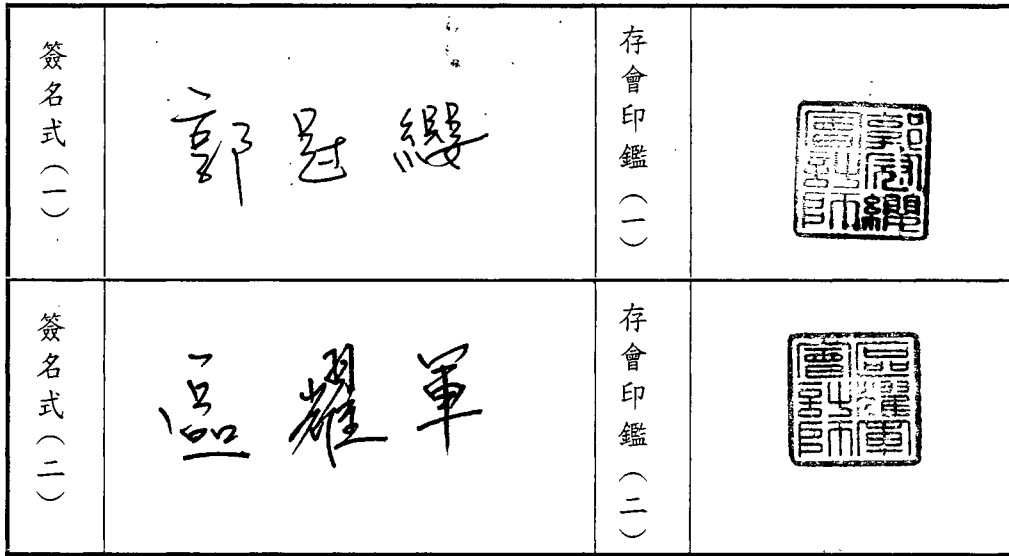 簽名式（一）
郭冠纓
存會印鑑（一）
郭冠纓會計師
簽名式（二）
區耀軍
存會印鑑（二）
區耀軍會計師